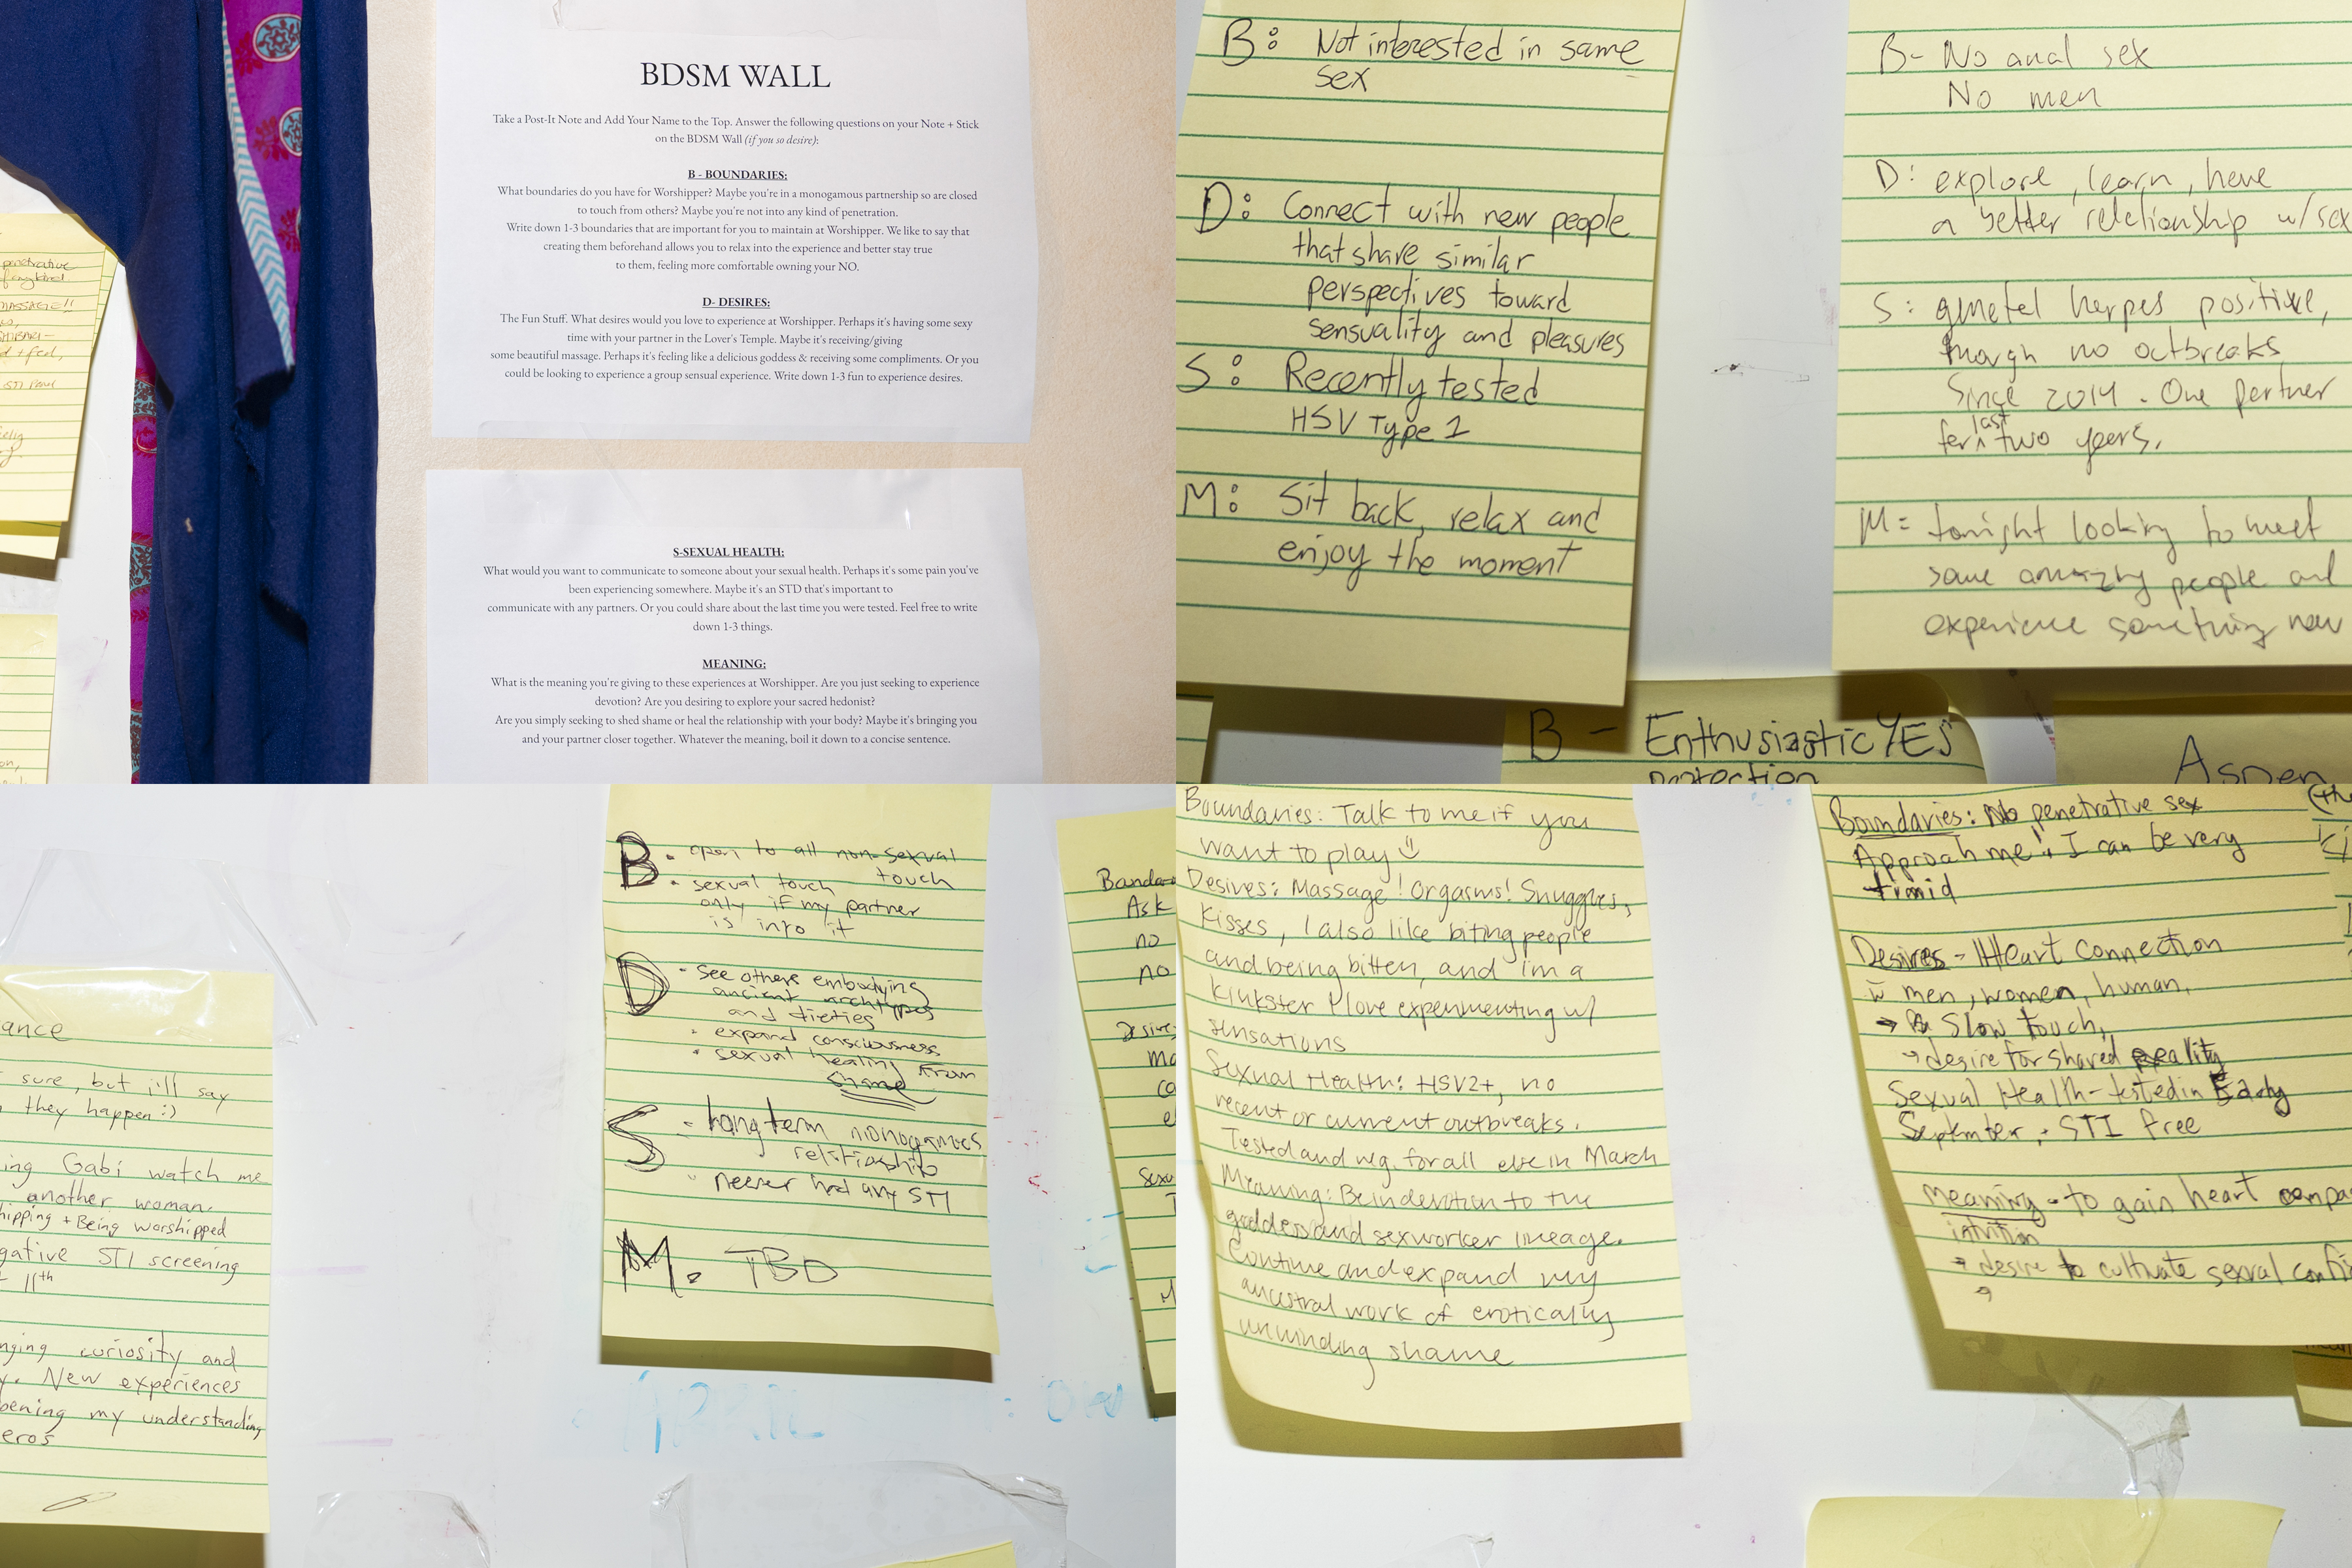 BDSM WALL
Take a Post-It Note and Add Your Name to the Top. Answer the following questions on your Note + Stick
on the BDSM Wall (if you so desire):
B - BOUNDARIES:
What boundaries do you have for Worshipper? Maybe you're in a monogamous partnership so are closed
to touch from others? Maybe you're not into any kind of penetration.
Write down 1-3 boundaries that are important for you to maintain at Worshipper. We like to say that
creating them beforehand allows you to relax into the experience and better stay true
to them, feeling more comfortable owning your NO.
D- DESIRES:
The Fun Stuff. What desires would you love to experience at Worshipper. Perhaps it's having some sexy
time with your partner in the Lover's Temple. Maybe it's receiving/giving
some beautiful massage. Perhaps it's feeling like a delicious goddess & receiving some compliments. Or you
could be looking to experience a group sensual experience. Write down 1-3 fun to experience desires.
S-SEXUAL HEALTH:
What would you want to communicate to someone about your sexual health. Perhaps it's some pain you've
been experiencing somewhere. Maybe it's an STD that's important to
communicate with any partners. Or you could share about the last time you were tested. Feel free to write
down 1-3 things.
MEANING:
What is the meaning you're giving to these experiences at Worshipper. Are you just seeking to experience
devotion? Are you desiring to explore your sacred hedonist?
Are you simply seeking to shed shame or heal the relationship with your body? Maybe it's bringing you
and your partner closer together. Whatever the meaning, boil it down to a concise sentence.
penetrative
MASSAGE!!
B: Not interested in same
sex
D: Connect with new people
that share similar
perspectives toward
sensuality and pleasures
S: Recently tested
HSV Type 1
M: Sit back, relax and
enjoy the moment
B- No anal sex
No men
D: explore, learn, have
a better relationship w/sex
S: gential herpes positive,
though no outbreaks
since 2014. One partner
for last two years.
M= tonight looking to meet
some amazing people and
experience something new
B - Enthusiastic YES
protection
Aspen
ance
sure, but i'll say
they happen :)
ing Gabi watch me
another woman.
hipping + Being worshipped
gative STI screening
11th
nging curiosity and
y. New experiences
pening my understanding
eros
B. open to all non-sexual
touch
• sexual touch
only if my partner
is into it
D • see others embodying
ancient archtypes
and dieties
• expand consciousness
• sexual healing from
shame
S - long term monogamous
relationship
- never had any STI
M. TBD
Ask
no
no
Desire
Boundaries: Talk to me if you
want to play
Desires: Massage! Orgasms! Snuggles,
kisses, I also like biting people
and being bitten, and i'm a
kinkster I love experimenting w/
sensations
Sexual Health: HSV2+, no
recent or current outbreaks.
Tested and neg. for all else in March
Meaning: Be in devotion to the
goddess and sexworker lineage.
Continue and expand my
ancestral work of erotically
unwinding shame
Boundaries: No penetrative sex
Approach me! I can be very
timid
Desires - Heart connection
w men, women, human,
→ Slow touch,
→ desire for shared reality
Sexual Health - tested in Early
September, STI free
meaning - to gain heart compa
intuition
→ desire to cultivate sexual confi